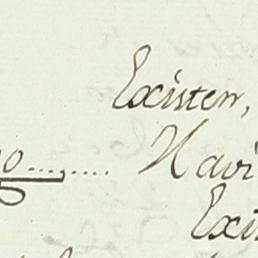 Existen,
no......, Navi
Exis